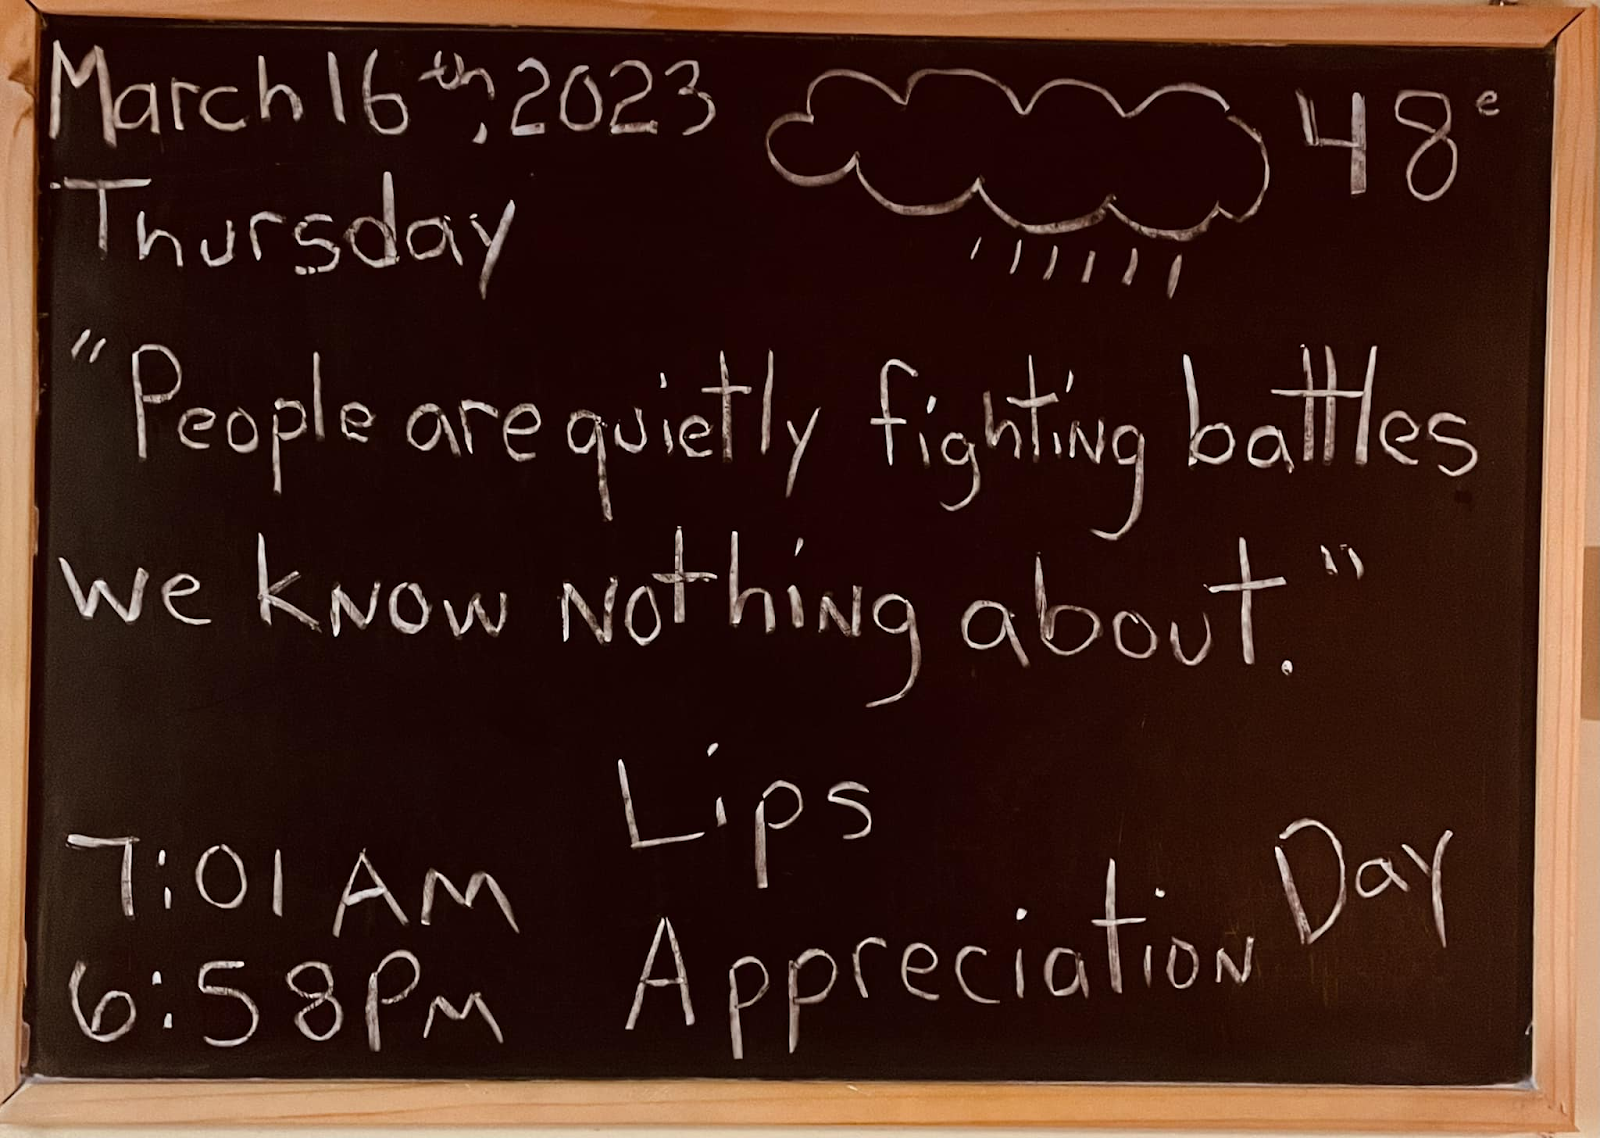 March 16th, 2023
48°
Thursday
"People are quietly fighting battles
we know nothing about."
Lips
Appreciation Day
7:01 AM
6:58 PM